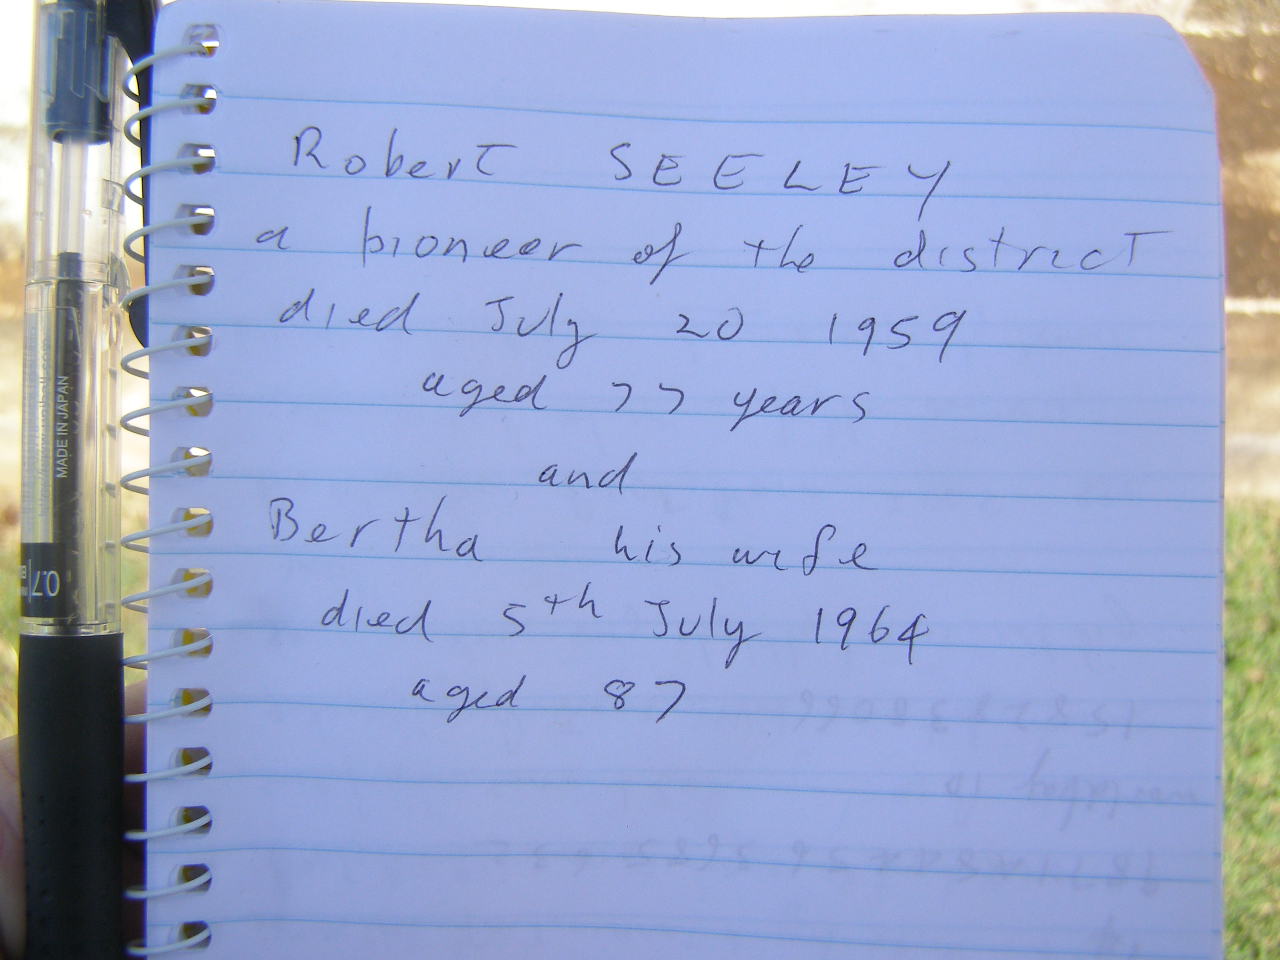 Robert SEELEY
a pioneer of the district
died July 20 1959
aged 77 years
and
Bertha his wife
died 5th July 1964
aged 87
MADE IN JAPAN
0.7